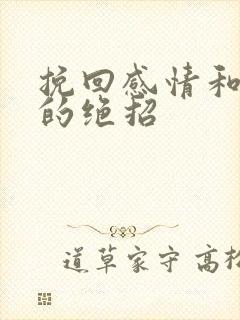 挽回感情和
的绝招
道草家守 高松